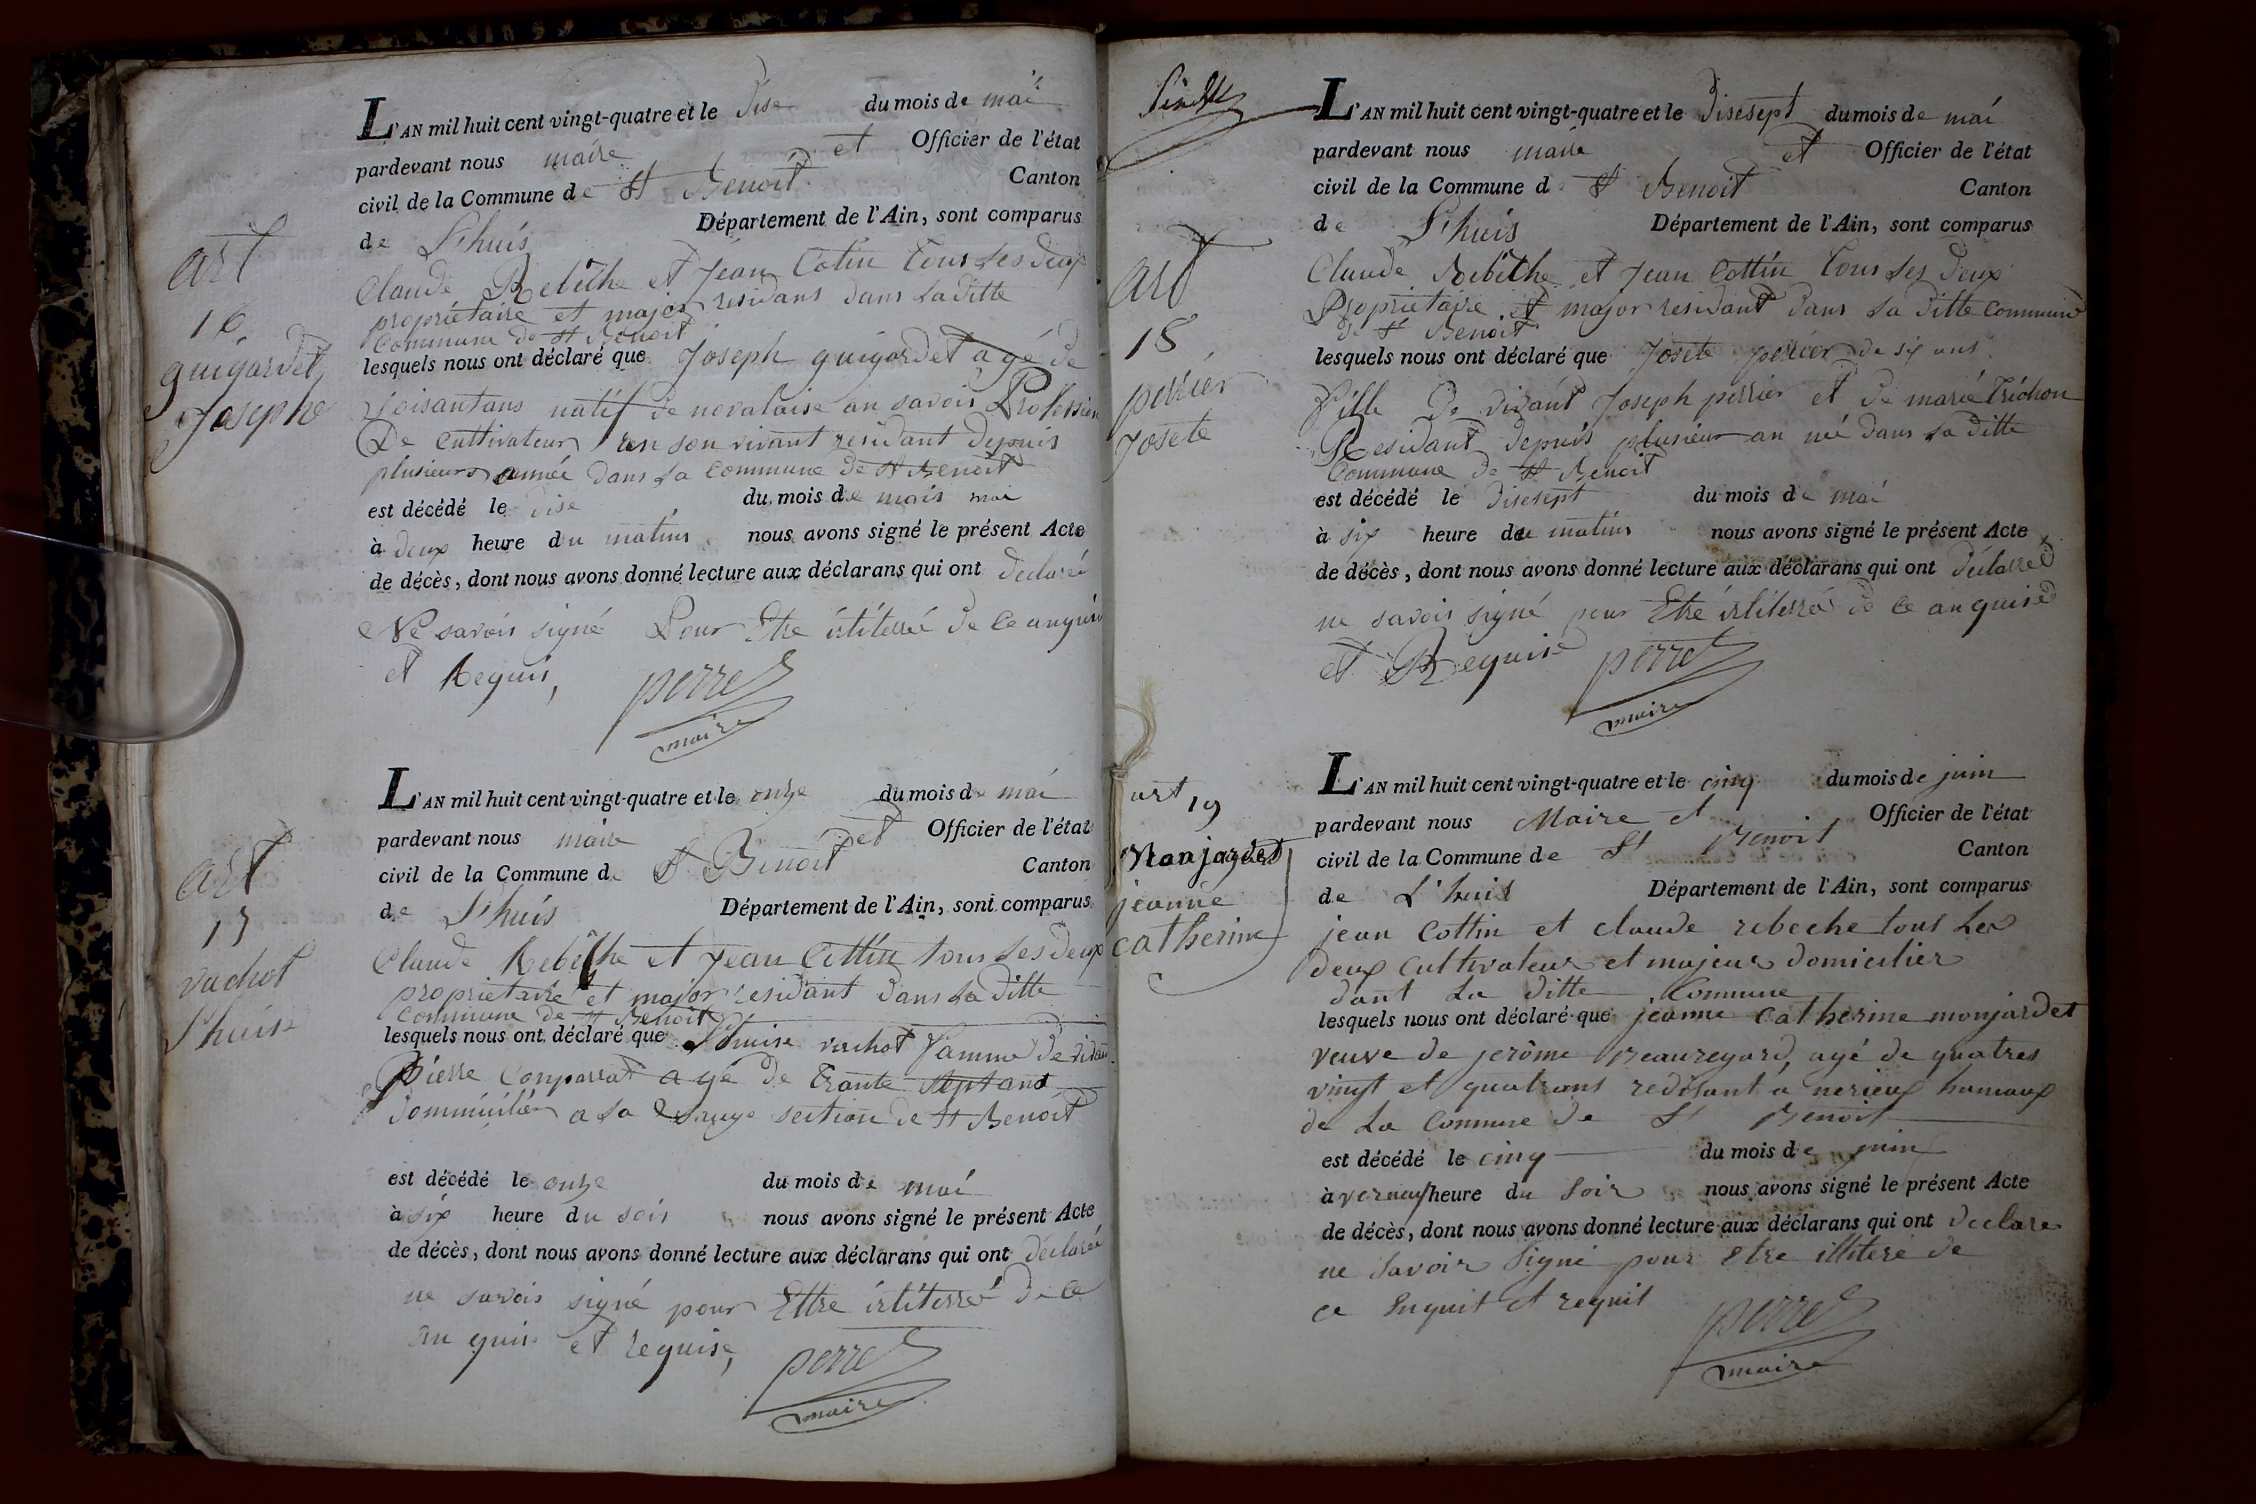 art
16
guigardet
Josephe
L'AN mil huit cent vingt-quatre et le dise du mois de mai
pardevant nous maire et Officier de l'état
civil de la Commune de St Benoit Canton
de L'huis Département de l'Ain, sont comparus
Claude Rebêthe et Jean Cotin tous les deux
propriétaire et major residans dans la ditte
Commune de St Benoit
lesquels nous ont déclaré que Joseph guigardet agé de
soisantans natif de novalaise an savoir Profession
De cultivateur en son vivant residant depuis
plusieurs année dans la Commune de St Benoit
est décédé le dise du mois de mais mai
à deux heure du matins nous avons signé le présent Acte
de décès, dont nous avons donné lecture aux déclarans qui ont declaré
Ne savoir signé Pour Etre irlitterré de ce anquis
et Requis,
perret
maire
art
17
vachot
L'huise
L'AN mil huit cent vingt-quatre et le onze du mois de mai
pardevant nous maire et Officier de l'état
civil de la Commune de St Benoit Canton
de L'huis Département de l'Ain, sont comparus
Claude Rebêthe et Jean Cottin tous les deux
proprietaire et major residant dans la ditte
Commune de St Benoit
lesquels nous ont déclaré que L'huise vachot famme de divan
Pierre Conparrat agé de trante septans
domicilier a la section de St Benoit
est décédé le onze du mois de mai
à six heure du soir nous avons signé le présent Acte
de décès, dont nous avons donné lecture aux déclarans qui ont déclaré
ne savoir signé pour Ettre irlitterré de ce
an quis et requise,
perret
maire
art
18
perrier
Josete
L'AN mil huit cent vingt-quatre et le disesept du mois de mai
pardevant nous maire et Officier de l'état
civil de la Commune d St Benoit Canton
de L'huis Département de l'Ain, sont comparus
Claude Rebêthe et Jean Cottin tous les deux
Propriétaire et major residant dans la ditte Commune
de St Benoit
lesquels nous ont déclaré que Josete perrier de six ans
fille de divant Joseph perrier et de marie trichon
Residant depuis plusieur an né dans la ditte
Commune de St Benoit
est décédé le disesept du mois de mai
à six heure du matins nous avons signé le présent Acte
de décès, dont nous avons donné lecture aux déclarans qui ont déclarré
ne savoir signé pour Etre irliterré de ce anquise
et Requise
perret
maire
art 19
Monjardet
jeanne
catherine
L'AN mil huit cent vingt-quatre et le cinq du mois de juin
pardevant nous Maire et Officier de l'état
civil de la Commune de St Benoit Canton
de L'huis Département de l'Ain, sont comparus
jean Cottin et claude rebeche tous les
deux cultivateur et majeur domicilier
dant la ditte Commune
lesquels nous ont déclaré que jeanne catherine monjardet
veuve de jerôme Beauregard, agé de quatres
vingt et quatrans redisant a nerieux hamaux
de la Commune de St Benoit
est décédé le cinq du mois de juin
à verneuf heure du soir nous avons signé le présent Acte
de décès, dont nous avons donné lecture aux déclarans qui ont declare
ne savoir signé pour etre illiteré de
ce enquit et requit
perret
maire